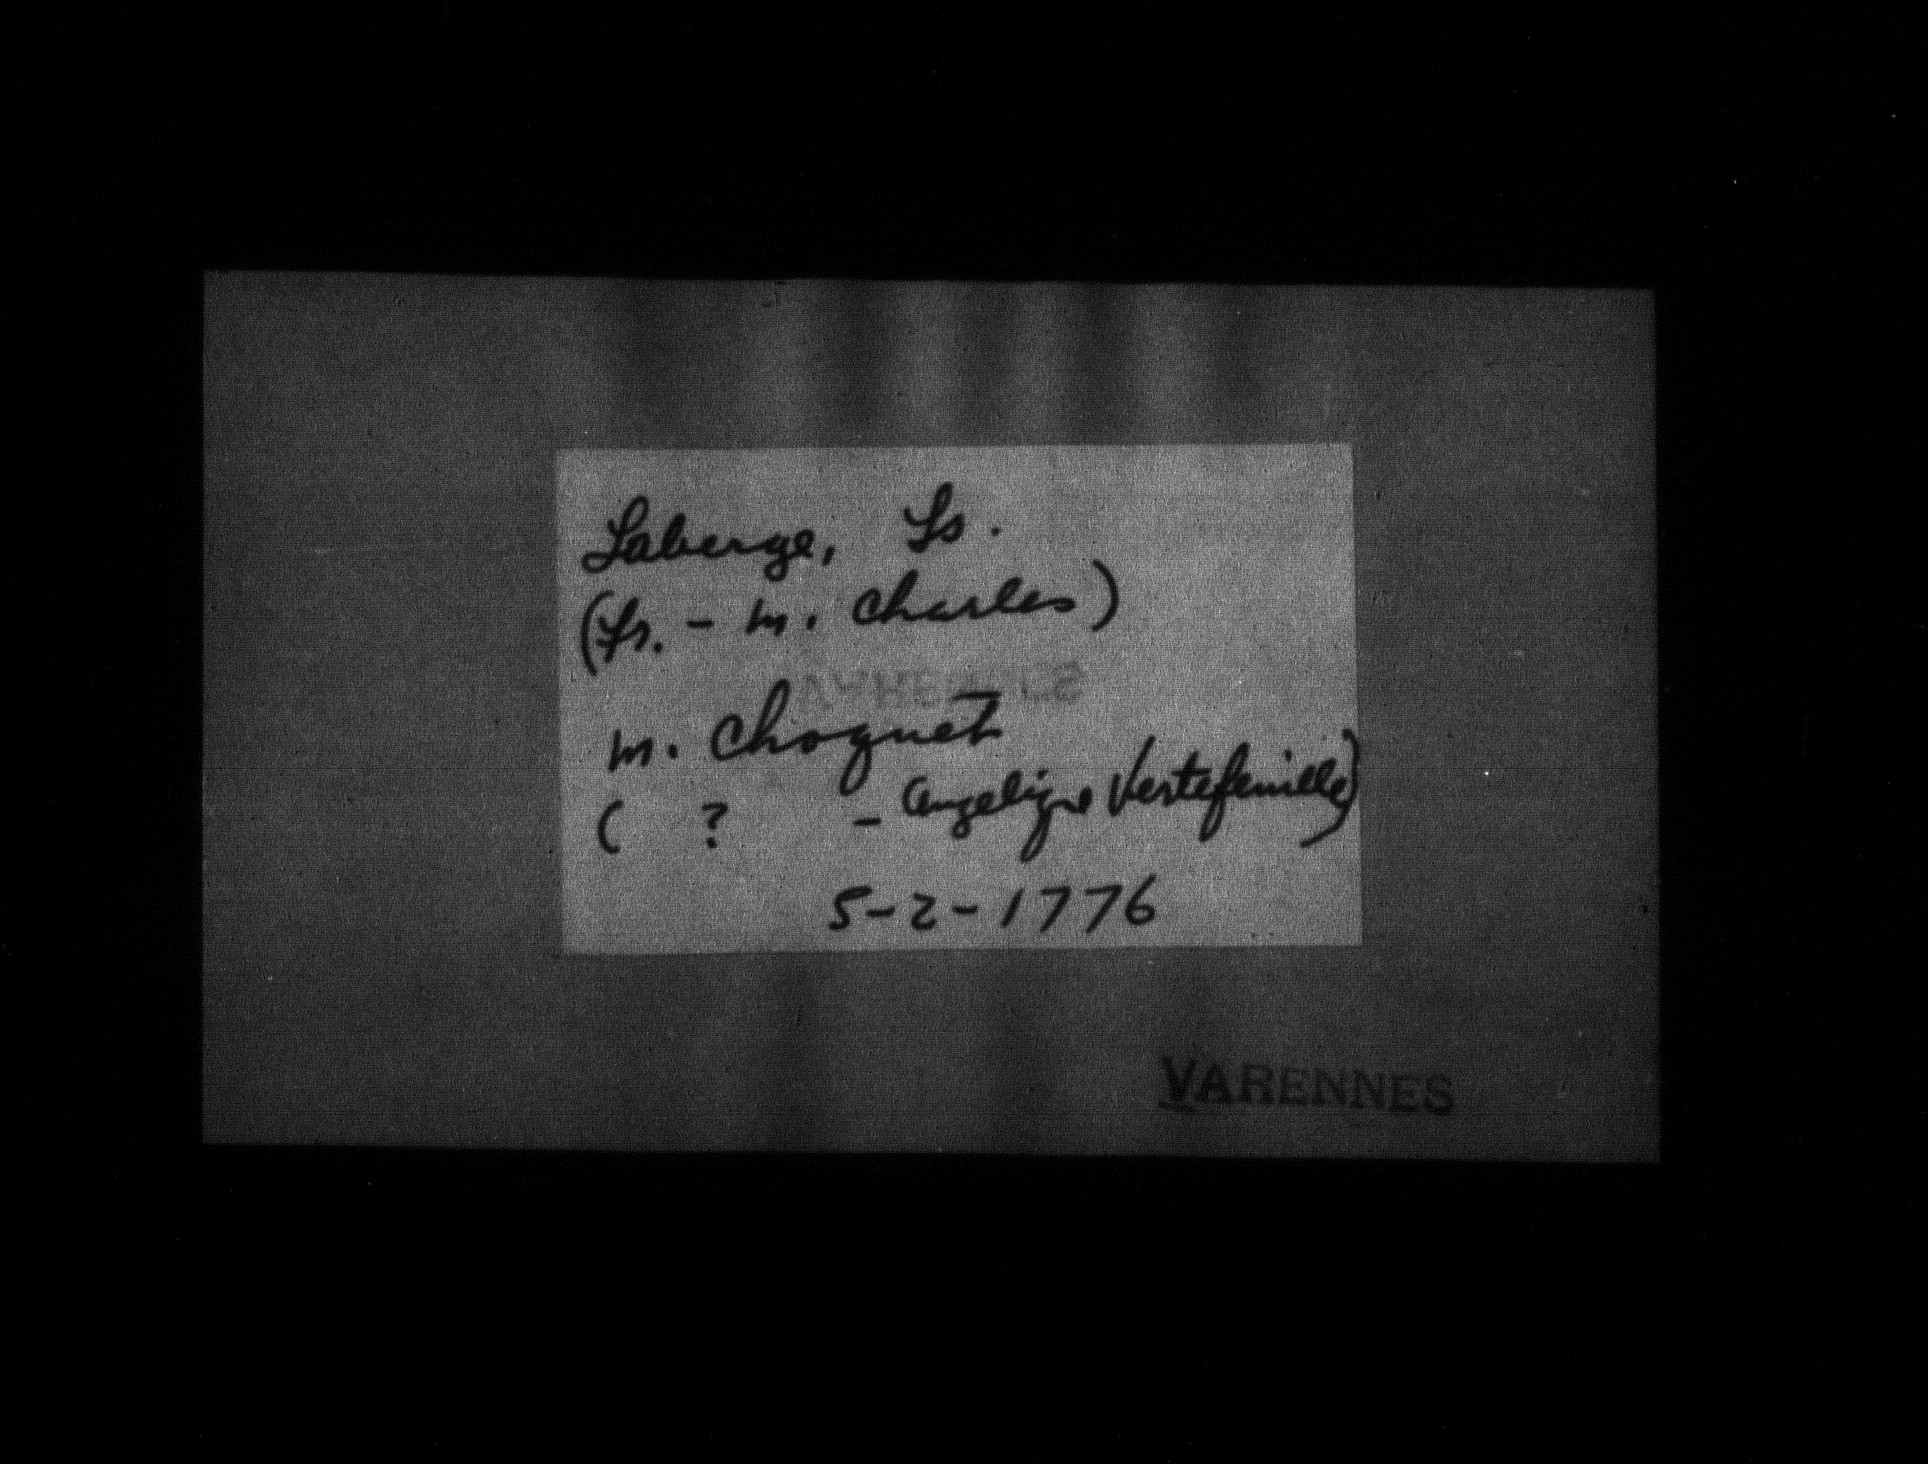 Laberge, Ls.
(Fr. - m. Charles)
m. Choquet
( ? - Angelique Vertefeuille)
5-2-1776
VARENNES